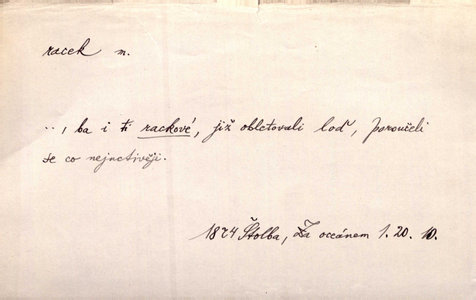 racek m.
.., ba i ti rackové, již obletovali loď, poroučeli
se co nejuctivěji.
1874 Štolba, Za oceánem 1. 20. 10.